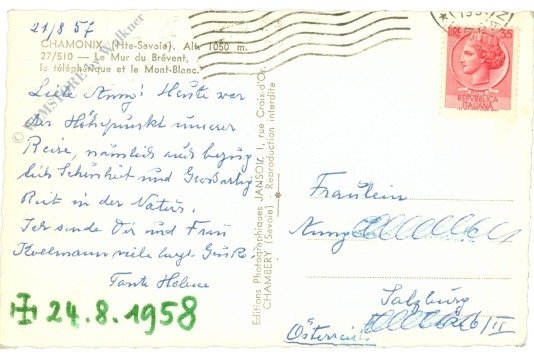 21/8 57
CHAMONIX (Hte-Savoie). Alt. 1050 m.
27/510 — Le Mur du Brévent,
le téléphérique et le Mont-Blanc.
Liebe Anny! Heute war
der Höhepunkt unserer
Reise, nämlich auch bezüg
lich Schönheit und Großartig
keit in der Natur.
Ich sende Dir und Frau
Kollmann viele Grüße.
Tante Helene
24.8.1958
Editions Photographiques JANSOL, 1, rue Croix-d'Or
CHAMBERY (Savoie) - Reproduction interdite
LIRE 35
REPUBBLICA
ITALIANA
Fräulein
Anny
Salzburg
Österreich
© by Walkner